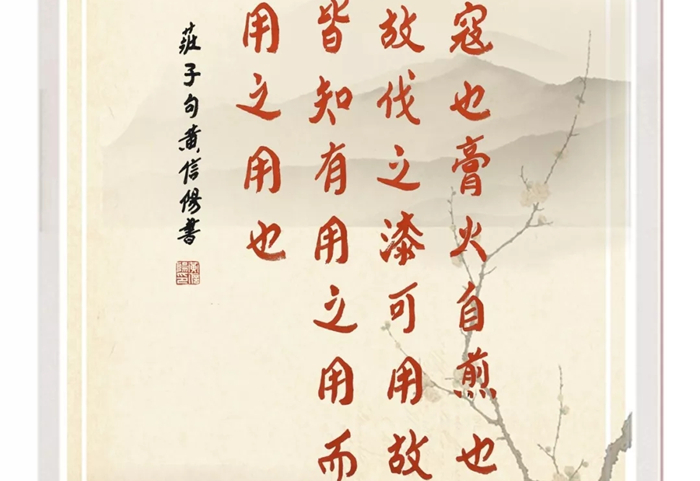 寇也膏火自煎也
故伐之漆可用故
皆知有用之用而
用之用也
莊子句黄信陽書